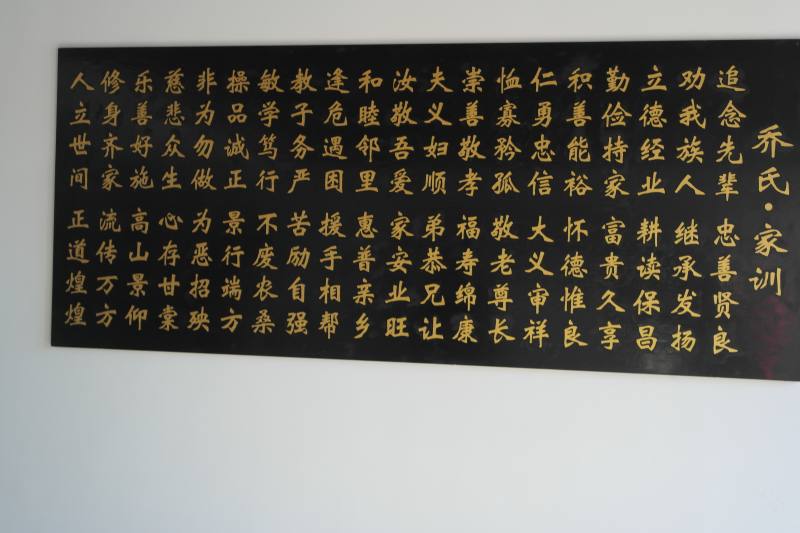 乔氏·家训
追念先辈 忠善贤良
劝我族人 继承发扬
立德经业 耕读保昌
勤俭持家 富贵久享
积善能裕 怀德惟良
仁勇忠信 大义审祥
恤寡矜孤 敬老尊长
崇善敬孝 福寿绵康
夫义妇顺 弟恭兄让
汝敬吾爱 家安业旺
和睦邻里 惠普亲乡
逢危遇困 援手相帮
教子务严 苦励自强
敏学笃行 不废农桑
操品诚正 景行端方
非为勿做 为恶招殃
慈悲众生 心存甘棠
乐善好施 高山景仰
修身齐家 流传万方
人立世间 正道煌煌